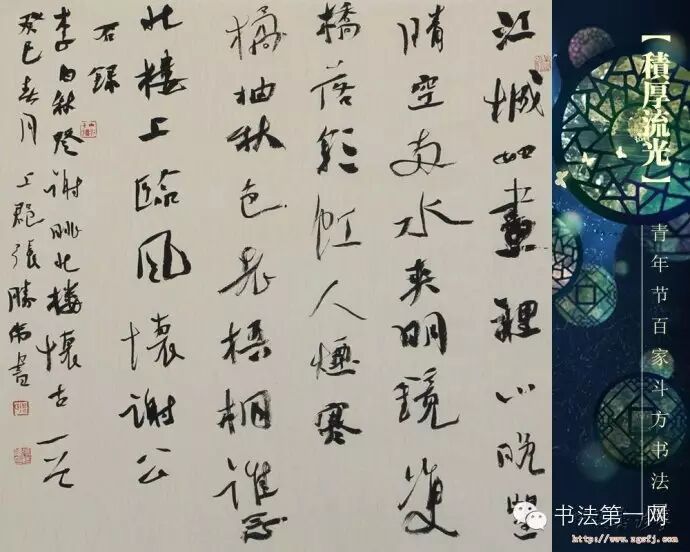 江城如畫裡山晚望
晴空兩水夾明鏡雙
橋落彩虹人煙寒
橘柚秋色老梧桐誰念
北樓上臨風懷謝公
右録
李白秋登謝朓北樓懷古一首
癸巳春月上郡張勝偉書
【積厚流光】
青年节百家斗方书法
书法第一网
http://www.zgsfj.com